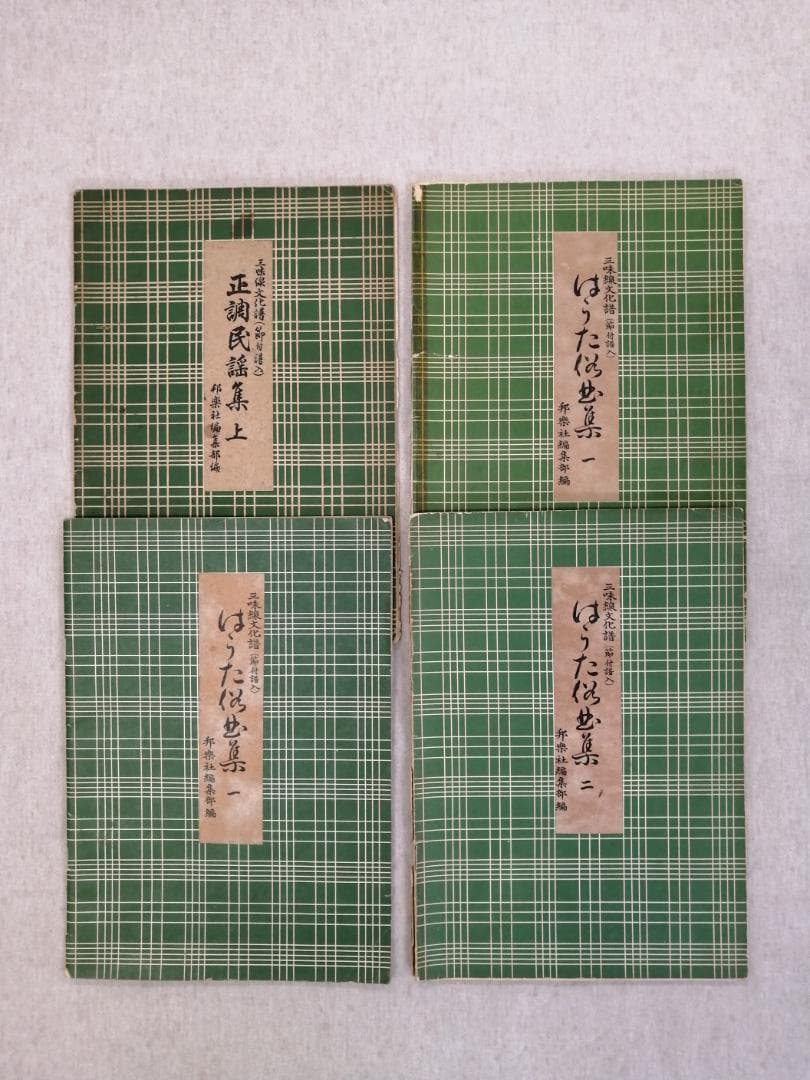 三味線文化譜(節付譜入)
正調民謡集 上
邦楽社編集部編
三味線文化譜(節付譜入)
はうた俗曲集 一
邦楽社編集部編
三味線文化譜(節付譜入)
はうた俗曲集 一
邦楽社編集部編
三味線文化譜(節付譜入)
はうた俗曲集 二
邦楽社編集部編